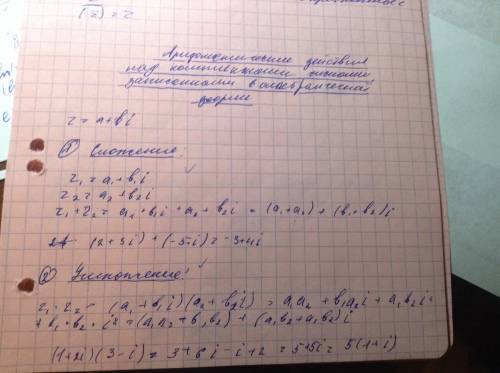 (z̄) = z
Арифметические действия
над комплексными числами
записанными в алгебраической
форме
z = a + bi
① Сложение:
z₁ = a₁ + b₁i
z₂ = a₂ + b₂i
z₁ + z₂ = a₁ + b₁i + a₂ + b₂i = (a₁ + a₂) + (b₁ + b₂)i
(2 + 5i) + (-5 - i) = -3 + 4i
② Умножение:
z₁ · z₂ = (a₁ + b₁i)(a₂ + b₂i) = a₁a₂ + b₁a₂i + a₁b₂i +
+ b₁ · b₂ · i² = (a₁a₂ + b₁b₂) + (a₁b₂ + a₁b₂)i
(1 + 2i)(3 - i) = 3 + 6i - i + 2 = 5 + 5i = 5(1 + i)